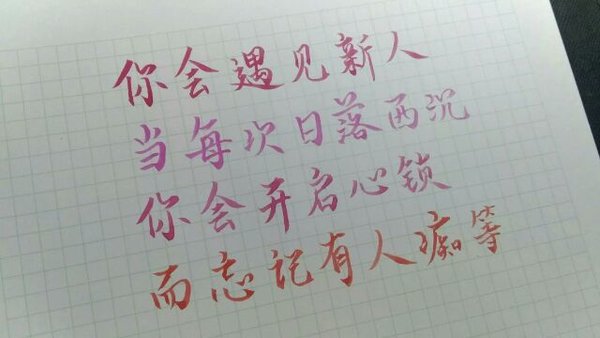 你会遇见新人
当每次日落西沉
你会开启心锁
而忘记有人痴等